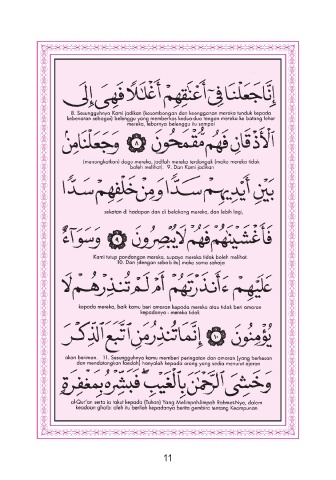 إِنَّا جَعَلْنَا فِىٓ أَعْنَٰقِهِمْ أَغْلَٰلًا فَهِىَ إِلَى
8. Sesungguhnya Kami jadikan (kesombongan dan keengganan mereka tunduk kepada
kebenaran sebagai) belenggu yang memberkas kedua-dua tangan mereka ke batang leher
mereka, lebarnya belenggu itu sampai
ٱلْأَذْقَانِ فَهُم مُّقْمَحُونَ ۝٨ وَجَعَلْنَا مِنۢ
(menongkatkan) dagu mereka, jadilah mereka terdongak (maka mereka tidak
boleh melihat). 9. Dan Kami jadikan
بَيْنِ أَيْدِيهِمْ سَدًّا وَمِنْ خَلْفِهِمْ سَدًّا
sekatan di hadapan dan di belakang mereka, dan lebih lagi,
فَأَغْشَيْنَٰهُمْ فَهُمْ لَا يُبْصِرُونَ ۝٩ وَسَوَآءٌ
Kami tutup pandangan mereka, supaya mereka tidak boleh melihat.
10. Dan (dengan sebab itu) maka sama sahaja
عَلَيْهِمْ ءَأَنذَرْتَهُمْ أَمْ لَمْ تُنذِرْهُمْ لَا
kepada mereka, baik kamu beri amaran kepada mereka atau tidak beri amaran
kepadanya - mereka tidak
يُؤْمِنُونَ ۝١٠ إِنَّمَا تُنذِرُ مَنِ ٱتَّبَعَ ٱلذِّكْرَ
akan beriman. 11. Sesungguhnya kamu memberi peringatan dan amaran (yang berkesan
dan mendatangkan faedah) hanyalah kepada orang yang sedia menurut ajaran
وَخَشِىَ ٱلرَّحْمَٰنَ بِٱلْغَيْبِ ۖ فَبَشِّرْهُ بِمَغْفِرَةٍ
al-Qur'an serta ia takut kepada (Tuhan) Yang Melimpah-limpah Rahmat-Nya, dalam
keadaan ghaib; oleh itu berilah kepadanya berita gembira tentang Keampunan
11